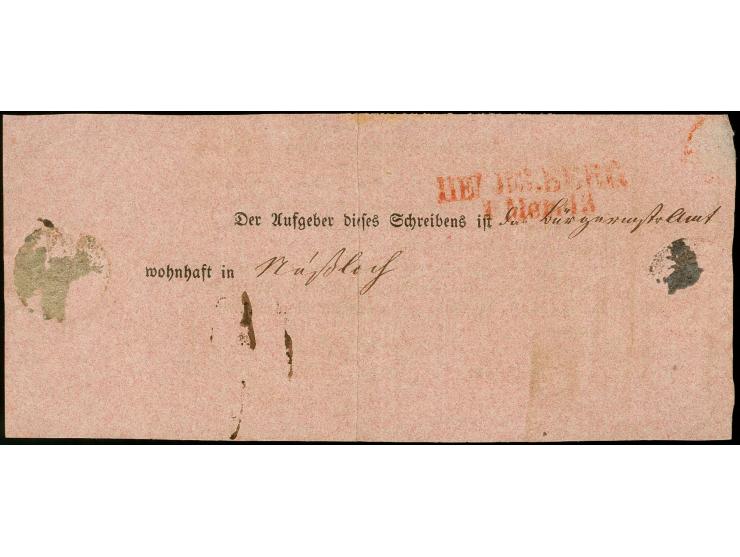 HEIDELBERG
Der Aufgeber dieses Schreibens ist das Bürgermstr Amt
wohnhaft in Nußloch